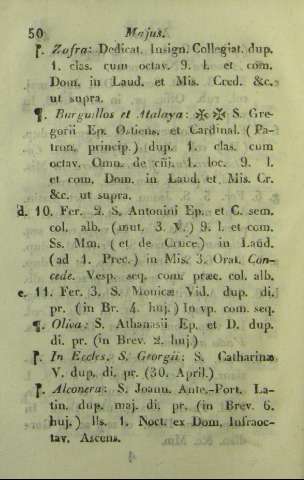 50 Majus.
¶. Zafra: Dedicat. Insign. Collegiat. dup.
1. clas. cum octav. 9. l. et com.
Dom. in Laud. et Mis. Cred. &c.
ut supra.
¶. Burguillos et Atalaya: ✠✠ S. Gre-
gorii Ep. Ostiens. et Cardinal. (Pa-
tron. princip.) dup. 1. clas. cum
octav. Omn. de cñj. 1. loc. 9. l.
et com. Dom. in Laud. et Mis. Cr.
&c. ut supra.
d. 10. Fer. 2. S. Antonini Ep. et C. sem.
col. alb. (mut. 3. V.) 9. l. et com.
Ss. Mm. (et de Cruce) in Laud.
(ad 1. Prec.) in Mis. 3. Orat. Con-
cede. Vesp. seq. com. præc. col. alb.
e. 11. Fer. 3. S. Monicæ Vid. dup. di.
pr. (in Br. 4. huj.) In vp. com. seq.
¶. Oliva: S. Athanasii Ep. et D. dup.
di. pr. (in Brev. 2. huj.)
¶. In Eccles. S. Georgii: S. Catharinæ
V. dup. di. pr. (30. April.)
¶. Alconera: S. Joann. Ante-Port. La-
tin. dup. maj. di. pr. (in Brev. 6.
huj.) lls. 1. Noct. ex Dom. Infraoc-
tav. Ascens.